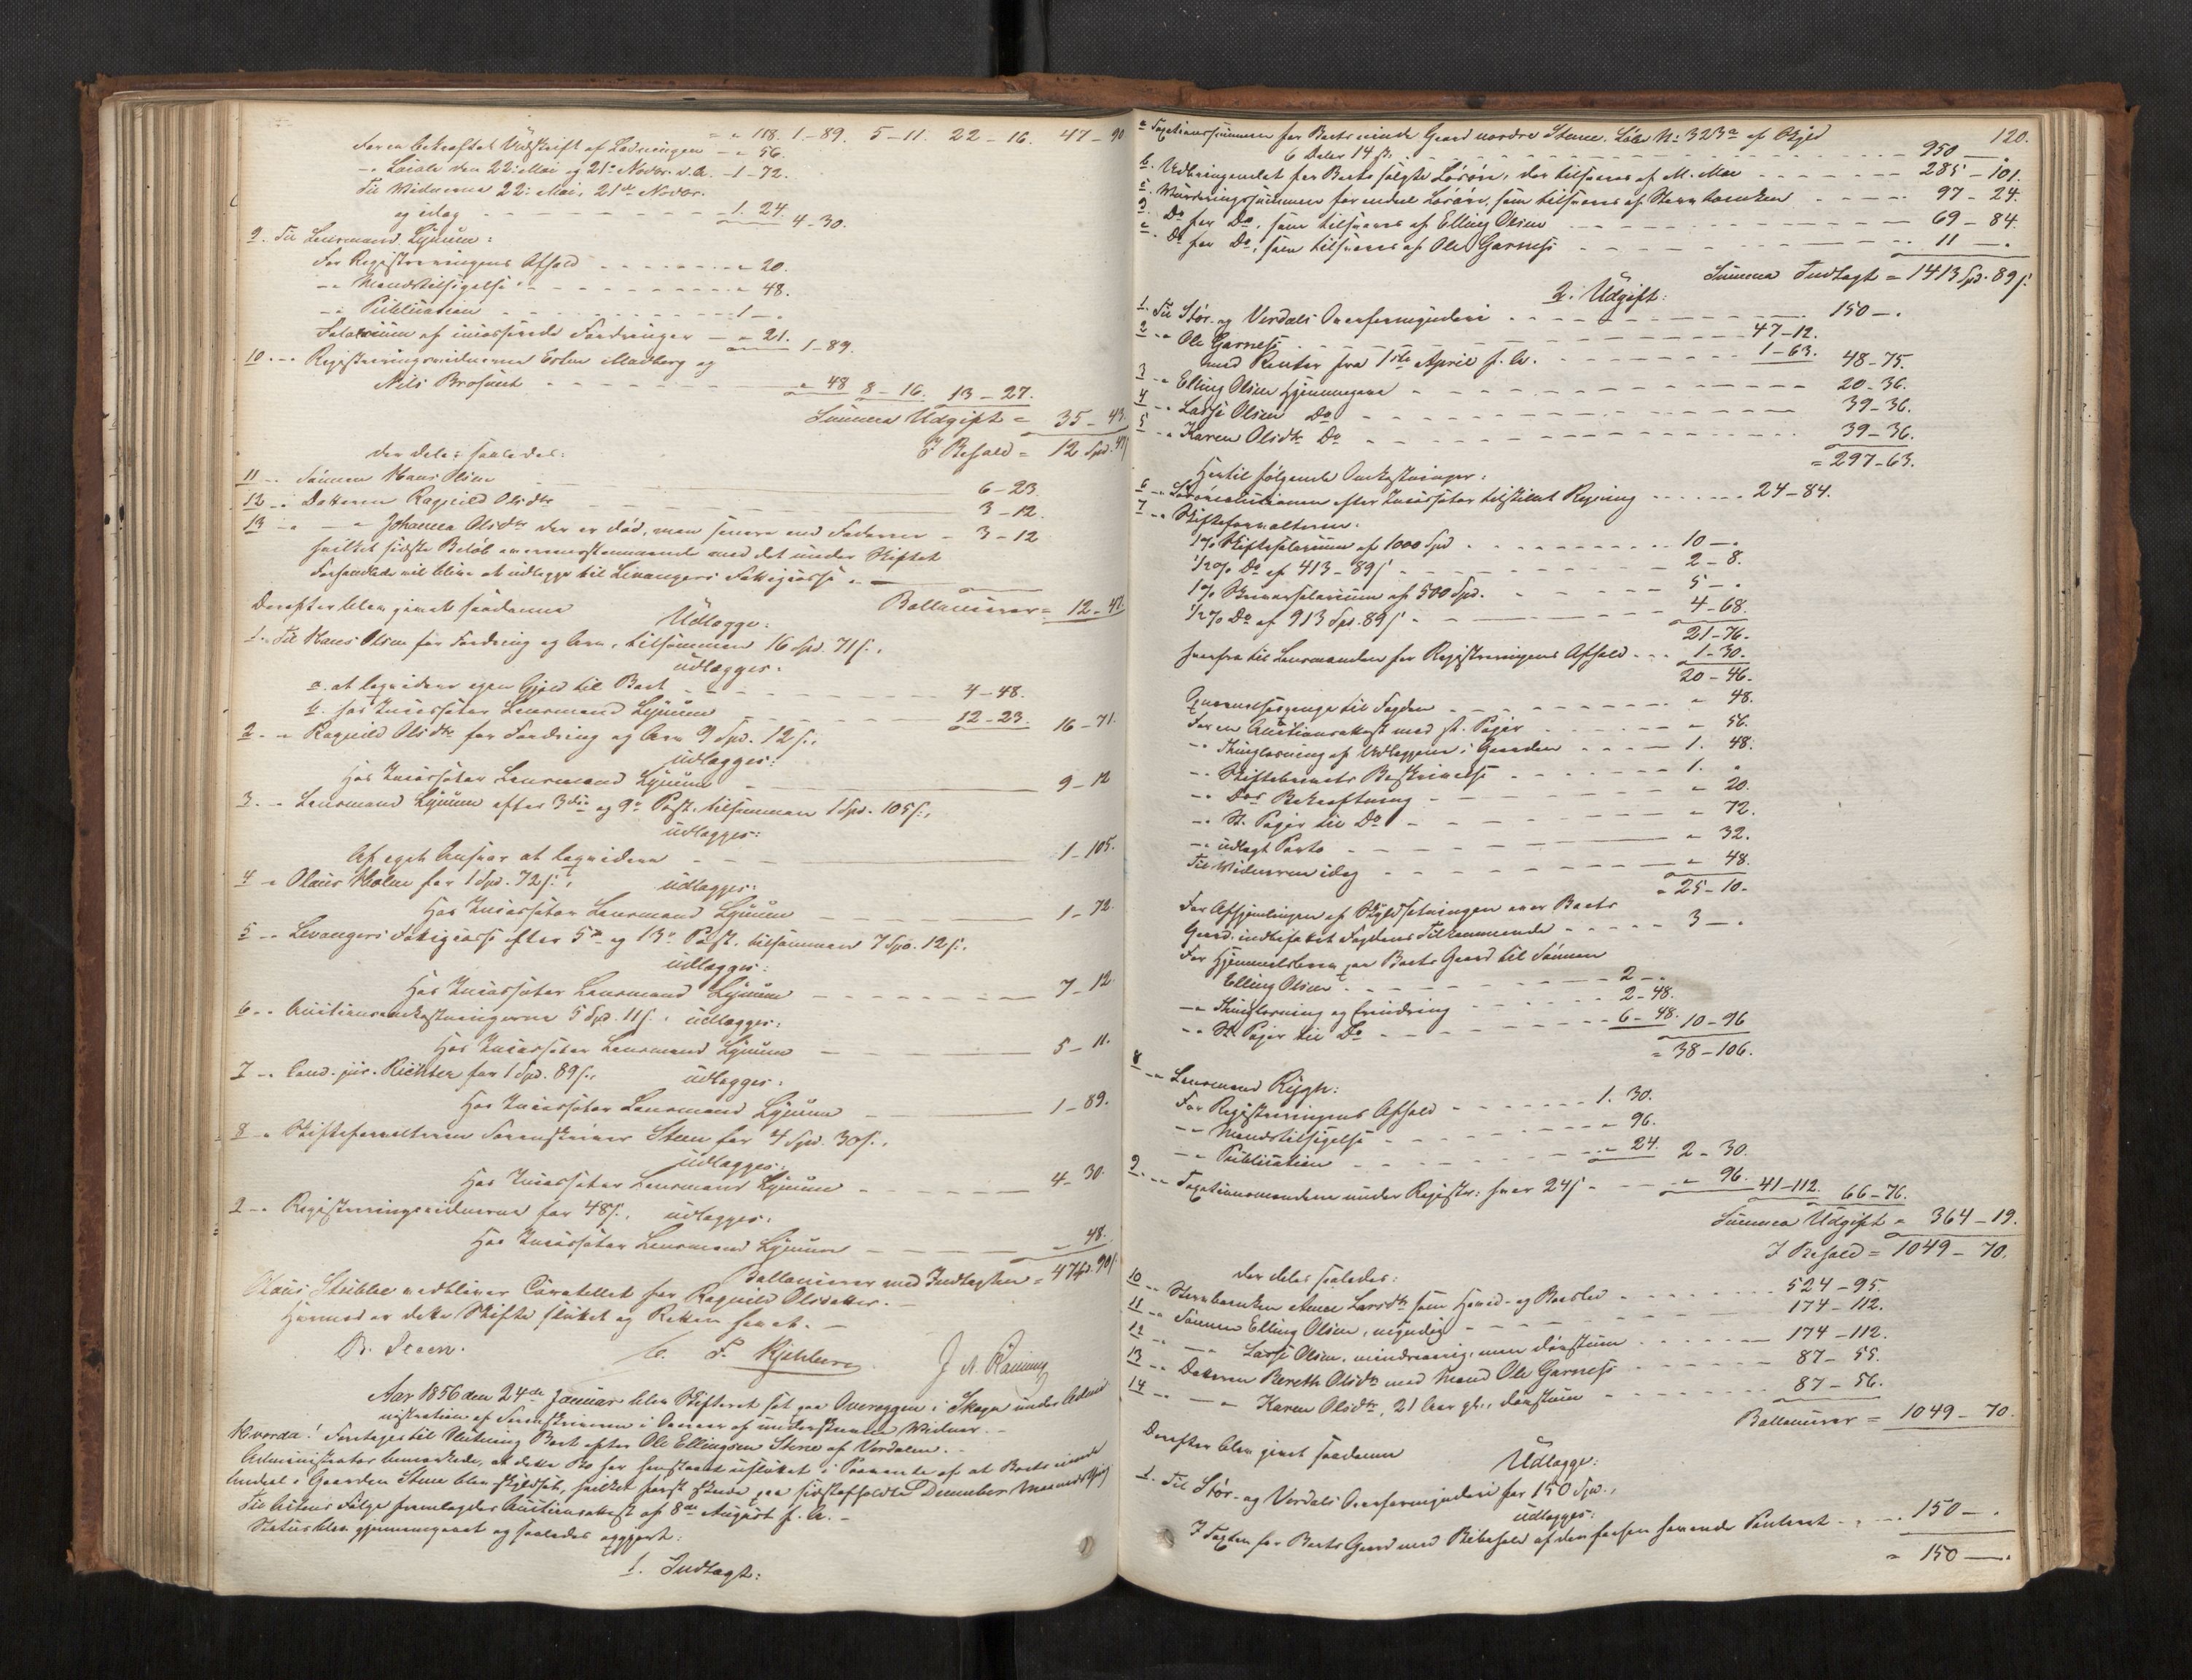 " " 118. 1–89. 5–11. 22–16. 47–90
For en bekræftet Udskrift af Ladningen – " 56.
–" Locale den 22: Mai og 21de Novbr. d.A. –1–72.
Til Vidnerne 22: Mai, 21de Novbr.
og idag – – – 1. 24. 4–30.
9. Til Lensmand Lynum:
For Registreringens Afhold – – – " 20.
–" Mandstilsigelse – – – " 48.
–" Publication – – – 1 – .
Salarium af incasserede Fordringer – " 21. 1–89.
10. –" Registreringsvidnerne Esten Madberg og
Nils Brosveet – – – " 48 8–16. 13–27.
Summa Udgift = 35–43.
I Behold = 12 Spd. 47
der deles saaledes:
11 –. Sønnen Hans Olsen – – – 6–23.
12 –. Datteren Ragnild Olsdtr – – – 3–12.
13 –" – " Johanna Olsdtr der er død, men senere end Faderen – 3–12
hvilket sidste Beløb overensstemmende med det under Skiftet
Forhandlede vil blive at udlægge til Levangers Fattigcasse. –
Ballancerer = 12–47
Derefter blev gjort saadanne
Udlægge:
1. Til Hans Olsen for Fordring og Arv, tilsammen 16 Spd. 71 s.,
udlægges:
a. at liqvidere egen Gjæld til Boet – – – 4–48.
b. hos Incassator Lensmand Lynum – – – 12–23. 16–71.
2. –" Ragnild Olsdtr for Fordring og Arv 9 Spd. 12 s.,
udlægges:
Hos Incassator Lensmand Lynum – – – 9–12
3. –" Lensmand Lynum efter 3die og 9de Post, tilsammen 1 Spd. 105 s.,
udlægges:
Af eget Ansvar at liqvidere – – – 1–105.
4 –" Olaus Holm for 1 Spd. 72 s., udlægges:
Hos Incassator Lensmand Lynum – – – 1–72.
5 –. Levangers Fattigcasse efter 5te og 13de Post, tilsammen 7 Spd. 12 s.
udlægges:
Hos Incassator Lensmand Lynum – – – 7–12
6 –. Auctionsomkostningerne 5 Spd. 11 s., udlægges:
Hos Incassator Lensmand Lynum – – – 5–11.
7 –. Cand. jur. Richter for 1 Spd. 89 s., udlægges:
Hos Incassator Lensmand Lynum – – – 1–89.
8 –" Skifteforvalteren Sorenskriver Steen for 4 Spd. 30 s.,
udlægges:
Hos Incassator Lensmand Lynum – – – 4–30.
9 –. Registreringsvidnerne for 48 s., udlægges:
Hos Incassator Lensmand Lynum – – – " 48.
Ballancerer med Indtægten = 47 Spd. 90 s
Olaus Stubbe vedbliver Curatellet for Ragnild Olsdatter. –
Hermed er dette Skifte sluttet og Retten hævet. –
B. Steen.
J A
Aar 1856 den 24de Januar blev Skifteret sat paa Overeggen i Skogn under Admi
nistration af Sorenskriveren i Overvær af underskrevne Vidner. –
Hvorda! Foretages til Slutning Boet efter Ole Ellingsen Stene af Værdalen. –
Administrator bemærkede, at dette Bo har henstaaet usluttet i Paavente af at Boets eiende
Andeel i Gaarden Stene blev skyldsat, hvilket først skede paa sidstafholdte December Maaneds
Til Actens Følge fremlagdes Auctionsakast af 8de August f. A. –
Status blev gjennemgaaet og saaledes opgjort:
1. Indtægt:
120.
a Taxationssummen for Boets eiende Gaard nordre Stene, Løbe No 323a af Skyld
6 Daler 14 s. – – – 950 – .
b. Udbringendet for Boets solgte Løsøre, der tilsvares af M. Moe – – – 285–101.
c. Vurderingssummen for endeel Løsøre, som tilsvares af Sterv Enken – – – 97–24.
d. Do for Do, som tilsvares af Elling Olsen – – – 69–84.
e. Do for Do, som tilsvares af Ole Garnes – – – 11 – .
Summa Indtægt = 1413 Spd. 89 s.
2. Udgift:
1. Til Stør- og Værdals Overformynderi – – – 150 – .
2 –" Ole Garnes – – – 47–12.
med Renter fra 1ste April f. A. – – – 1–63. 48–75.
3 –" Elling Olsen Hjemmegave – – – 20–36.
4 –. Lasse Olsen Do – – – 39–36.
5 –. Karen Olsdtr Do – – – 39–36.
= 297–63.
Hertil følgende Omkostninger:
6 –. Løsøreauctionen efter Incassator tilstillet Regning – – – 24–84.
7 –. Skifteforvalteren:
1% Skiftesalarium af 1000 Spd – – – 10 – .
1/2 % Do af 413–89 s – – – 2–8.
1% Skriversalarium af 500 Spd. – – – 5 – .
1/2 % Do af 913 Spd. 89 s – – – 4–68.
21–76.
herfra til Lensmanden for Registreringens Afhold – – – 1–30.
20–46.
Qværnelsespenge til Fogden – – – " 48.
For en Auctionsakast med st. Papir – – – " 56.
–" Thinglæsning af Udlæggene i Gaarden – – – 1. 48.
–" Skiftebrevets Beskrivelse – – – 1. "
–" Dets Bekræftning – – – " 20.
–" St. Papir til Do – – – " 72.
–" udlagt Porto – – – " 32.
Til Vidnerne idag – – – " 48.
= 25–10.
For Afhjemlingen af Skyldsætningen over Boets
Gaard, indbefattet Fogdens Tilkommende – – – 3 – .
For Hjemmelsbrev paa Boets Gaard til Sønnen
Elling Olsen – – – 2 – .
–" Thinglæsning og Erindring – – – 2–48.
–" St. Papir til Do – – – 6–48. 10–96
= 38–106.
8 –" Lensmand Rygh:
For Registreringens Afhold – – – 1. 30.
–" Mandstilsigelse – – – " 96.
–" Publication – – – " 24. 2–30.
9 –" Taxationsmændene under Registr: hver 24 s – – – " 96. 41–112. 66–76.
Summa Udgift = 364–19.
I Behold = 1049–70.
der deles saaledes:
10 –. Stervboenken Anne Larsdtr som Hoved- og Boeslod – – – 524–95.
11 –" Sønnen Elling Olsen, myndig – – – 174–112.
12 –" –" Lasse Olsen, mindreaarig, men døvstum – – – 174–112.
13 –" Datteren Bereth Olsdtr med Mand Ole Garnes – – – 87–55.
14 –" –" Karen Olsdtr, 21 Aar gl., døvstum – – – 87–56.
Ballancerer = 1049–70.
Derefter blev gjort saadanne
Udlægge:
1. Til Stør- og Værdals Overformynderi for 150 Spd.,
udlægges:
I Taxten for Boets Gaard med Bibehold af den forhen havende Panteret – – – 150 – .
= 150 – .